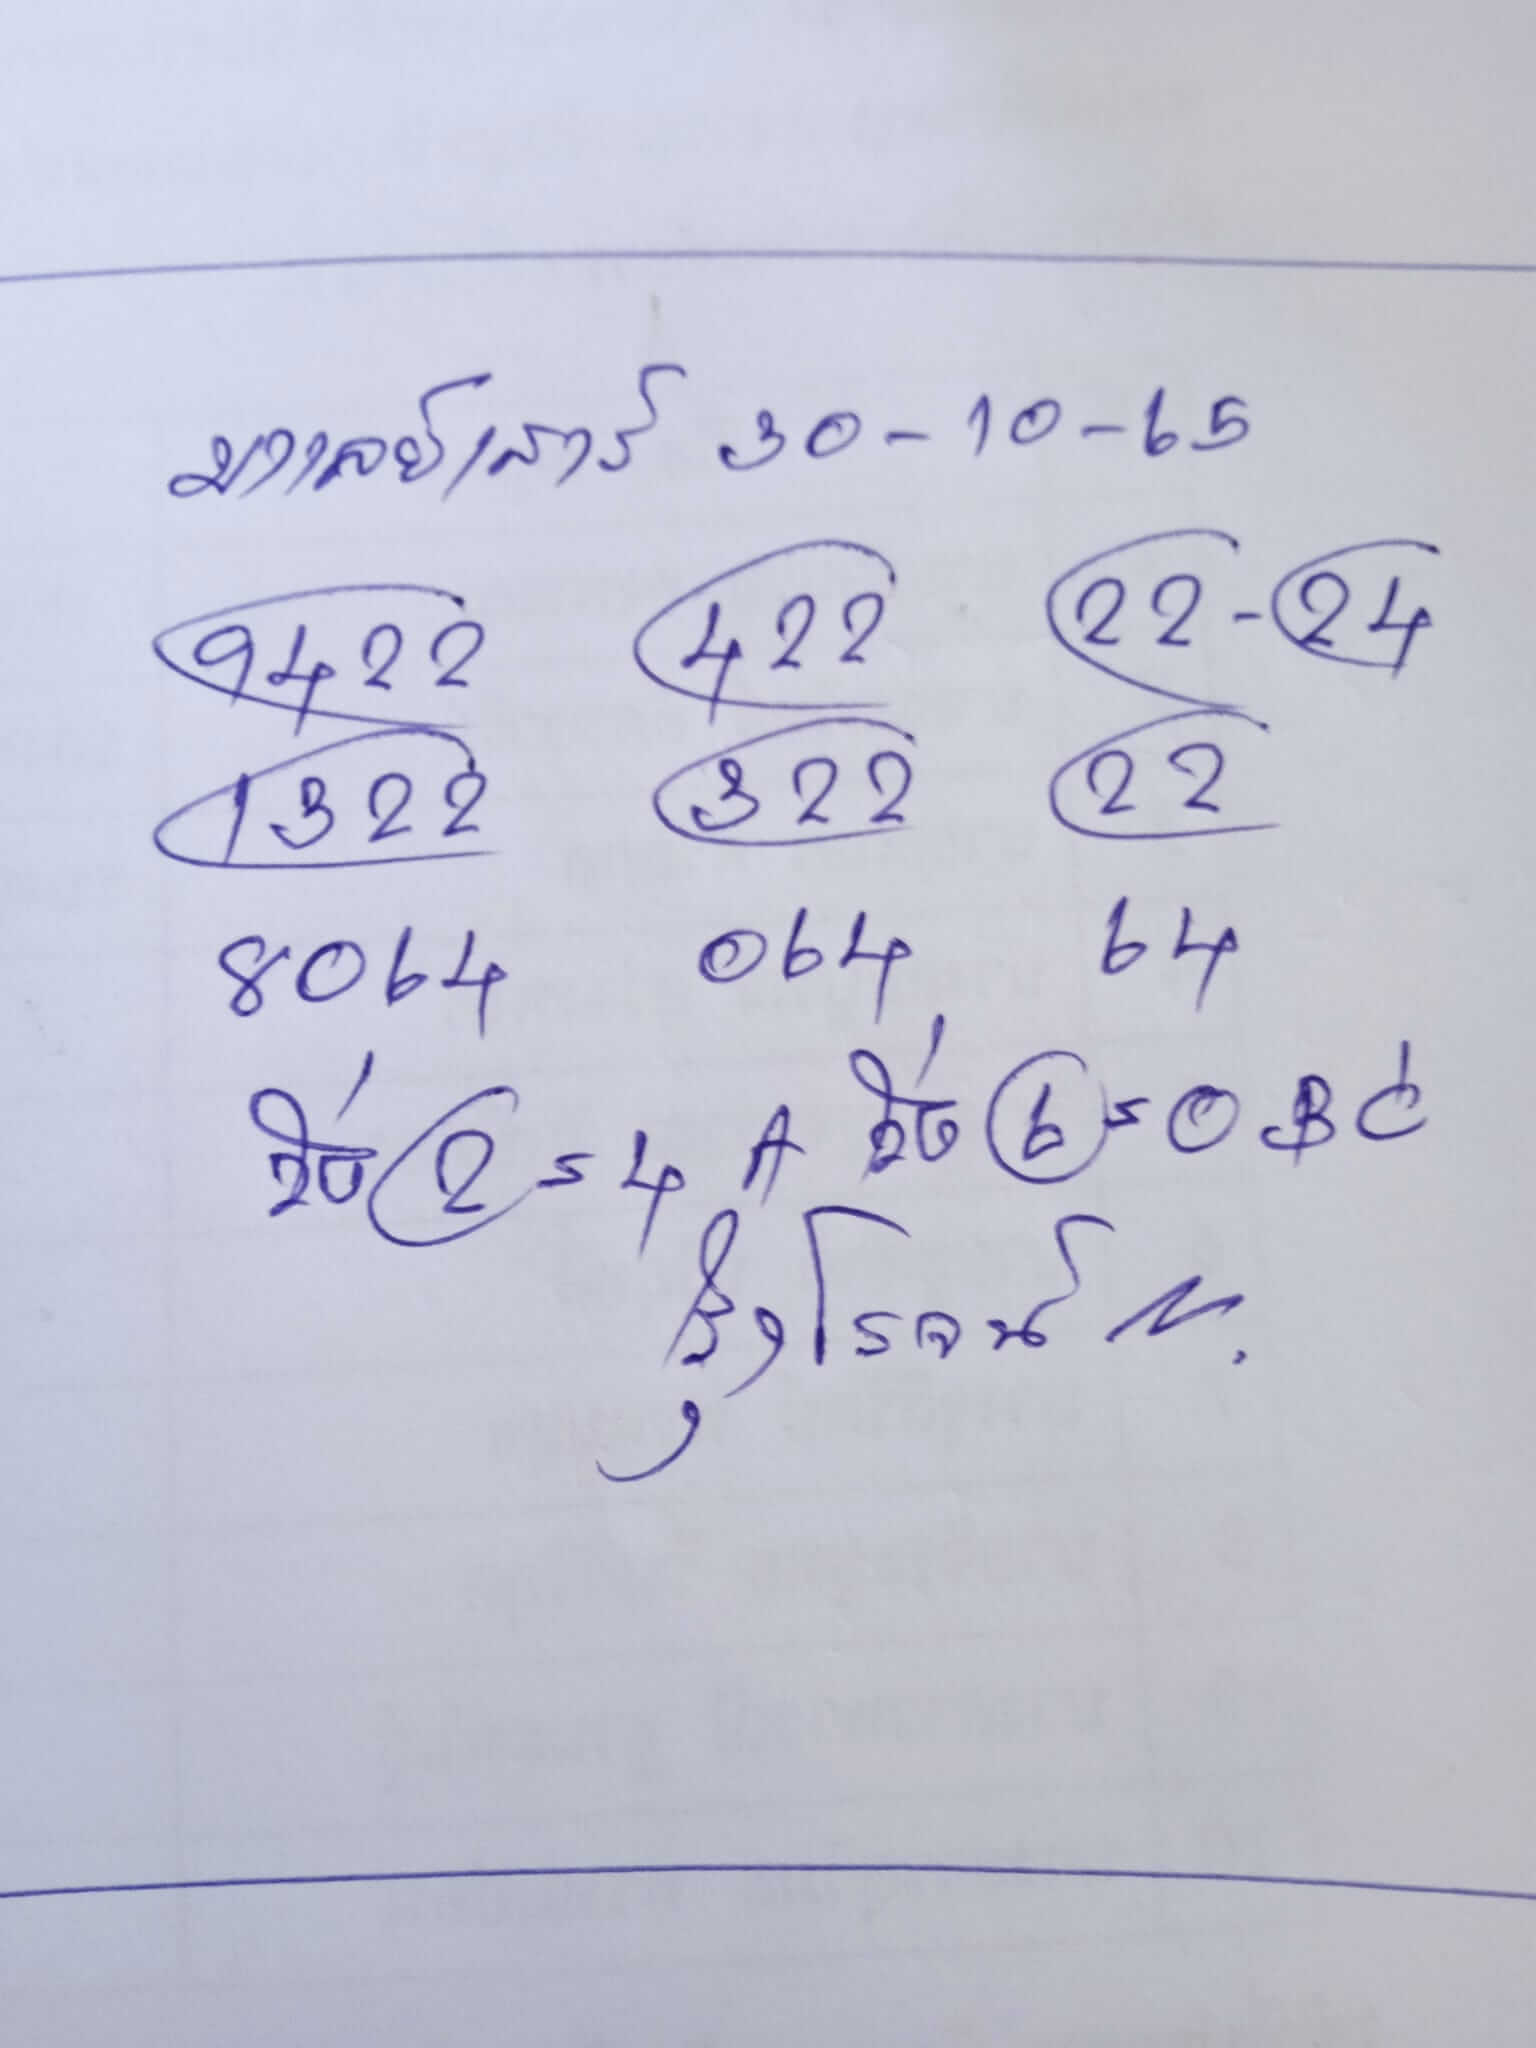 มาเลย์เสาร์ 30-10-65
9422 422 22-24
1322 322 22
8064 064 64
วิ่ง 2 = 4 A วิ่ง 6 = 0 B C
โรจน์ N.